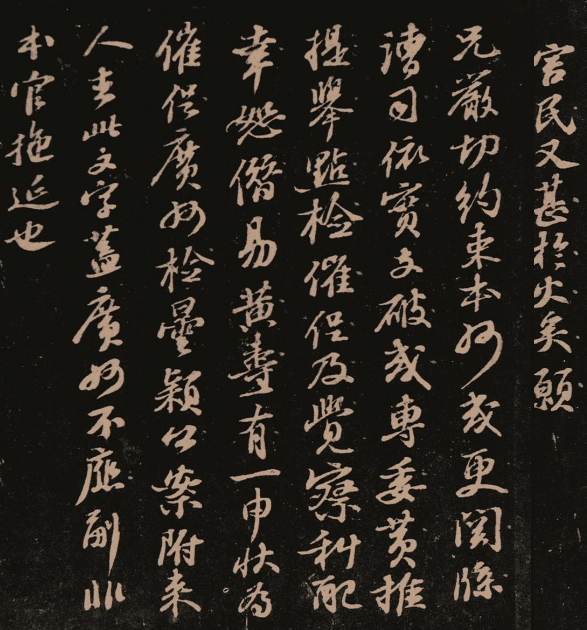 害民又甚於火矣願
兄嚴切約束本州或更関牒
漕司依實支破或專委黄推
提舉點檢催促及覺察科配
幸恕僭易黄壽有一申状為
催促廣州檢曇穎公案附来
人去此文字蓋廣州不應副非
本官拖延也